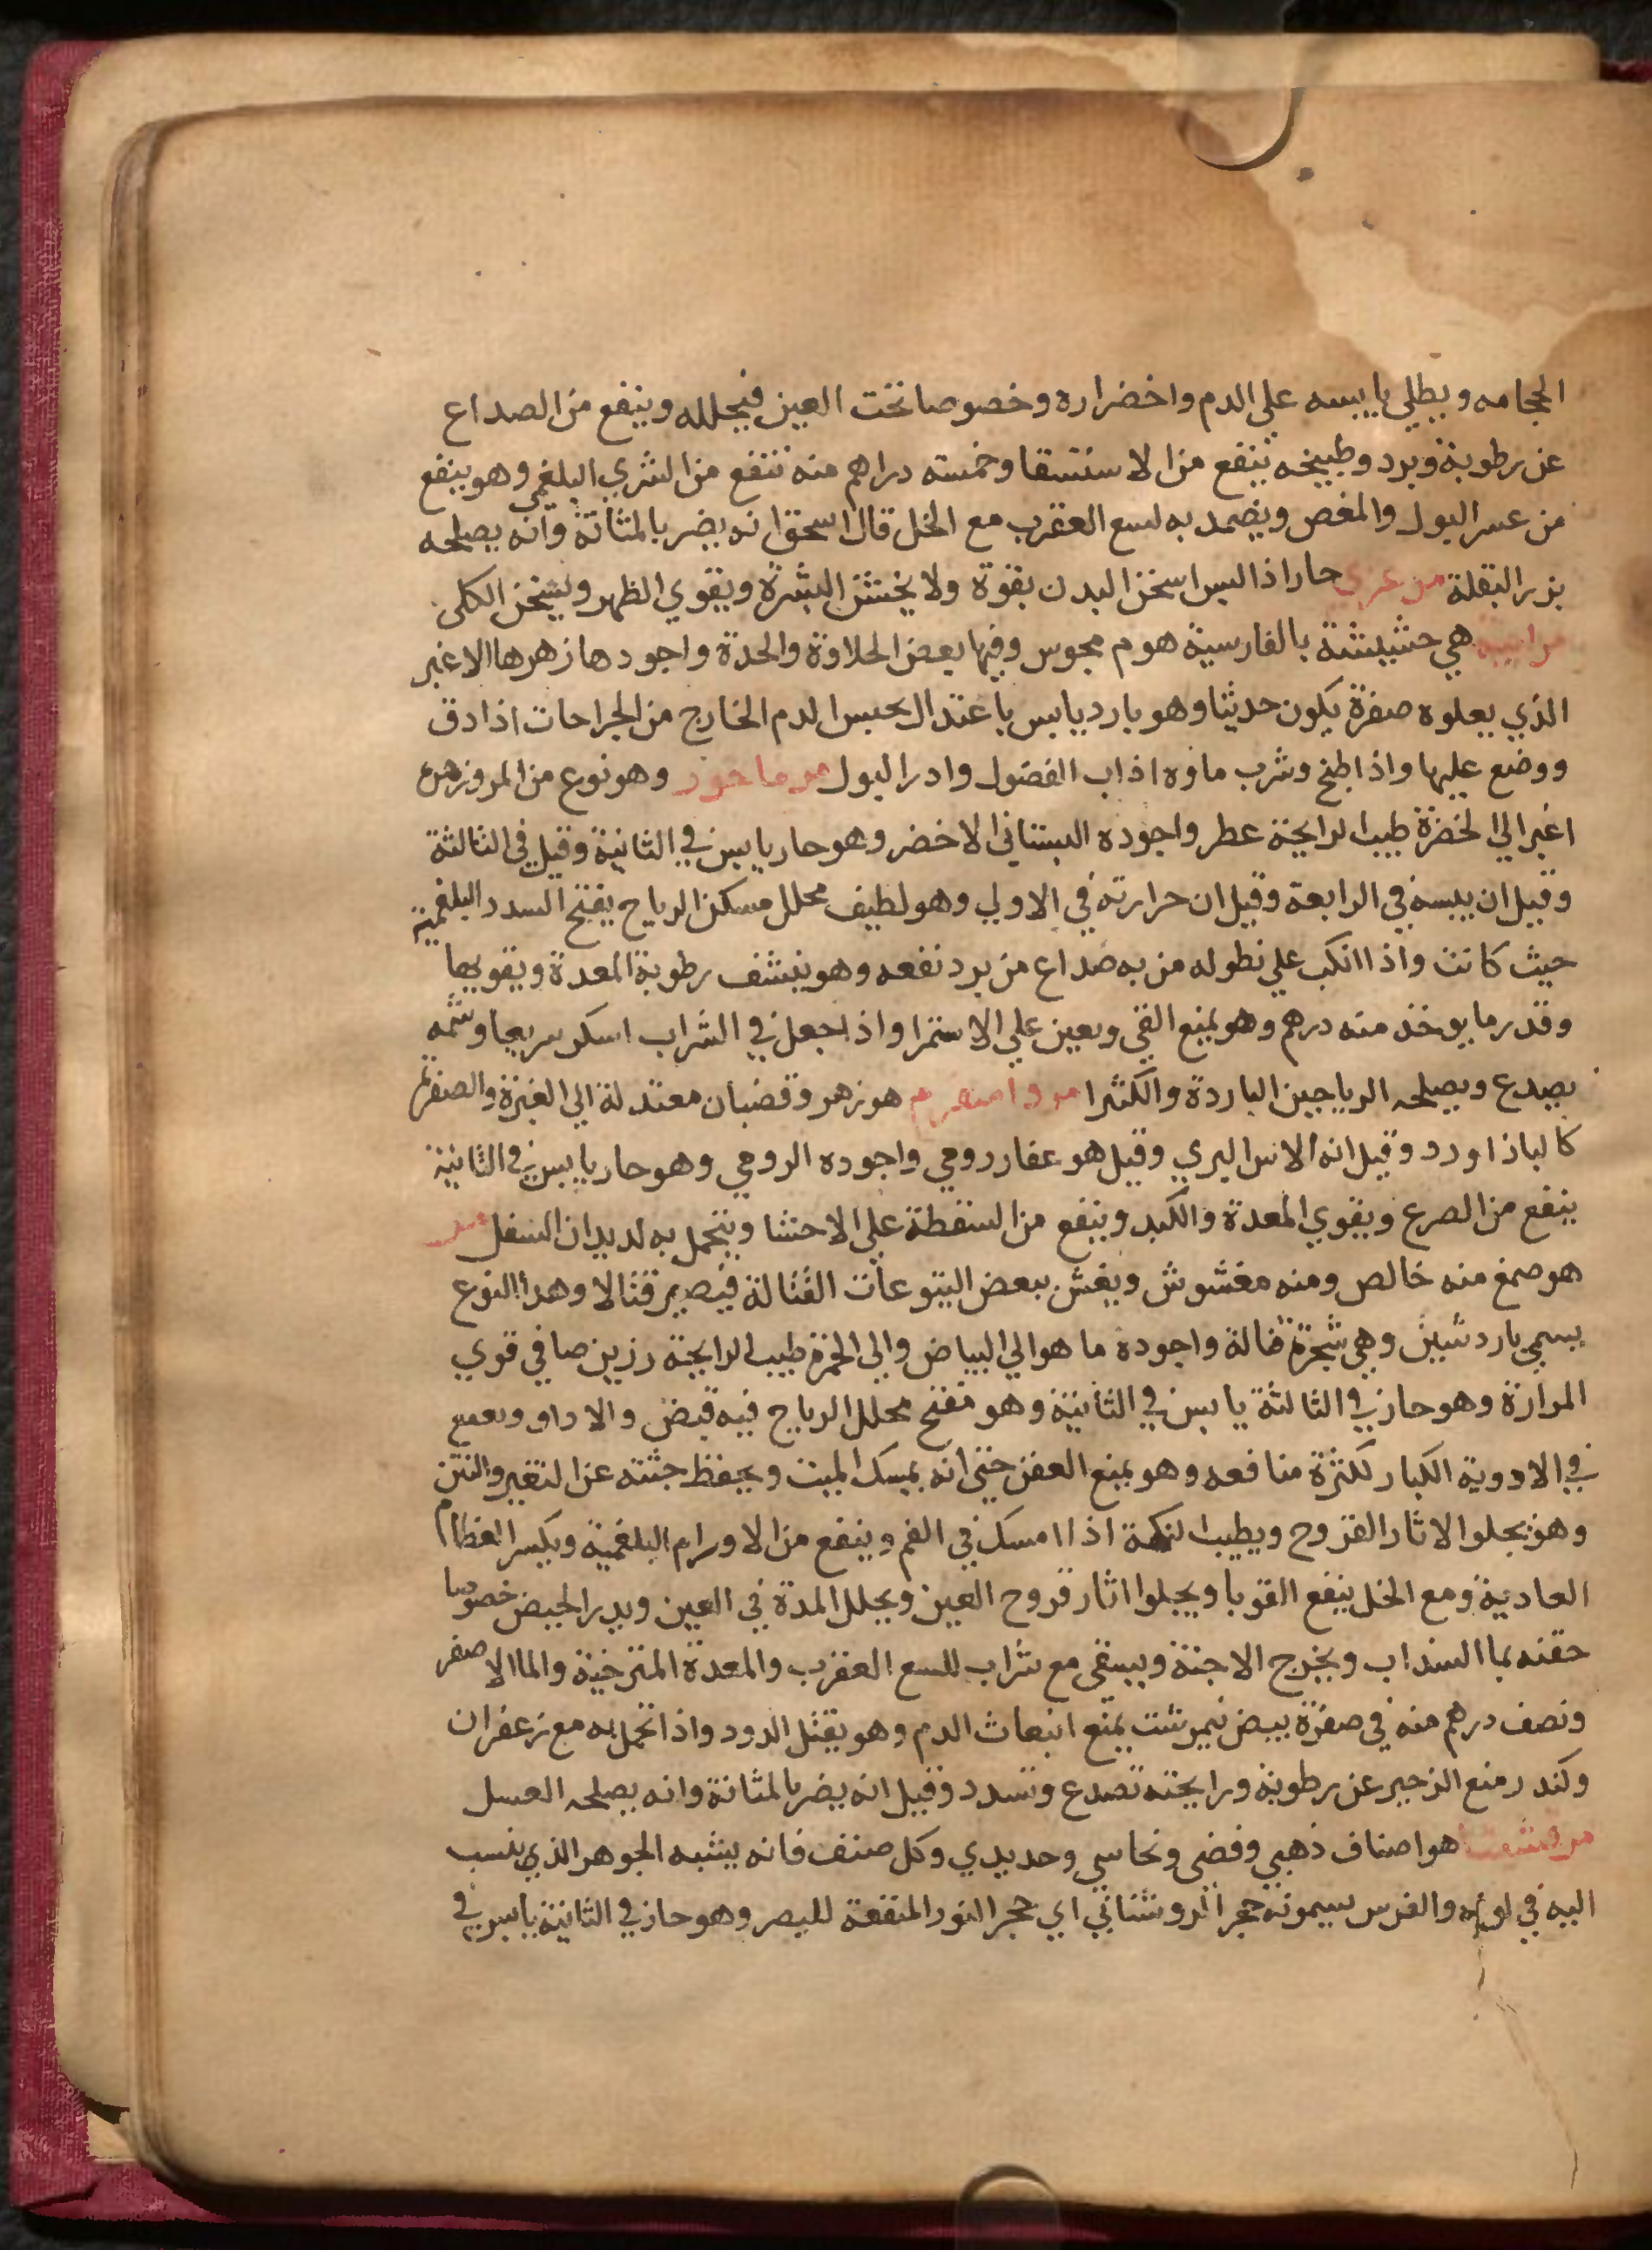 الحجامه ويطلي يابسه علي الدم واخضراره وخصوصا تحت العين فيحلله وينفع من الصداع
عن رطوبة وبرد وطبيخه ينفع من الاستسقا وخمسته دراهم منه تنفع من الشري البلغمي وهو ينفع
من عسر البول والمغص ويضمد به لسع العقرب مع الخل قال اسحق انه يضر بالمثانة وانه يصلحه
بزر البقلة مرعزي حار اذا لبس اسخن البدن بقوة ولا يخشن البشرة ويقوي الظهر ويسخن الكلى
مرانية هي حشيشة بالفارسية هوم مجوس وفيها بعض الحلاوة والحدة واجودها زهرها الاغبر
الذي يعلوه صفرة يكون حديثا وهو بارد يابس باعتدال يحبس الدم الخارج من الجراحات اذا دق
ووضع عليها واذا طبخ وشرب ماوه اذاب الفضول وادر البول مرماحور وهو نوع من المرو زهره
اغبر الي الخضرة طيب الرايحة عطر واجوده البستاني الاخضر وهو حار يابس في الثانية وقيل في الثالثة
وقيل ان يبسه في الرابعة وقيل ان حرارته في الاولي وهو لطيف محلل مسكن الرياح يفتح السدد البلغمية
حيث كانت واذا انكب علي نطوله من به صداع من برد نفعه وهو ينشف رطوبة المعدة ويقويها
وقدر ما يوخذ منه درهم وهو يمنع القي ويعين علي الاستمرا واذا جعل في الشراب اسكر سريعا وشمه
يصدع ويصلحه الرياحين الباردة والكثيرا مرداسفرم هو زهر وقضبان معتدلة الي الغبرة والصفرة
كالباذاورد وقيل انه الاس البري وقيل هو عقار رومي واجوده الرومي وهو حار يابس في الثانية
ينفع من الصرع ويقوي المعدة والكبد وينفع من السقطة علي الاحشا ويتحمل به لديدان السفل مر
هو صمغ منه خالص ومنه مغشوش ويغش ببعض اليتوعات القتالة فيصير قتالا وهدا النوع
يسمي بارد شين وهي شجرة قتالة واجوده ما هو الي البياض والي الحمرة طيب الرايحة رزين صافي قوي
المرارة وهو حار في الثالثة يابس في الثانية وهو مفتح محلل الرياح فيه قبض والزاق ويقع
في الادوية الكبار لكثرة منافعه وهو يمنع العفن حتى انه يمسك الميت ويحفظ جثته عن التغير والنتن
وهو يجلوا الاثار القروح ويطيب النكهة اذا امسك في الفم وينفع من الاورام البلغمية ويكسر العظام
العادية ومع الخل ينفع القوبا ويجلوا اثار قروح العين ويحلل المدة في العين ويدر الحيض خصوصا
حقنه بما السداب ويخرج الاجنة ويسقي مع شراب للسع العقرب والمعدة المترخية والما الاصفر
ونصف درهم منه في صفرة بيض نيمرشت يمنع انبعاث الدم وهو يقتل الدود واذا تحمل به مع زعفران
وكندر منع الزحير عن رطوبة ورايحته تصدع وتسدد وقيل انه يضر بالمثانة وانه يصلحه العسل
مرقشيثا هو اصناف ذهبي وفضي ونحاسي وحديدي وكل صنف فانه يشبه الجوهر الذي ينسب
اليه في لونه والفرس يسمونه حجر الروشنائي اي حجر النور المنفعة للبصر وهو حار في الثانية يابس في